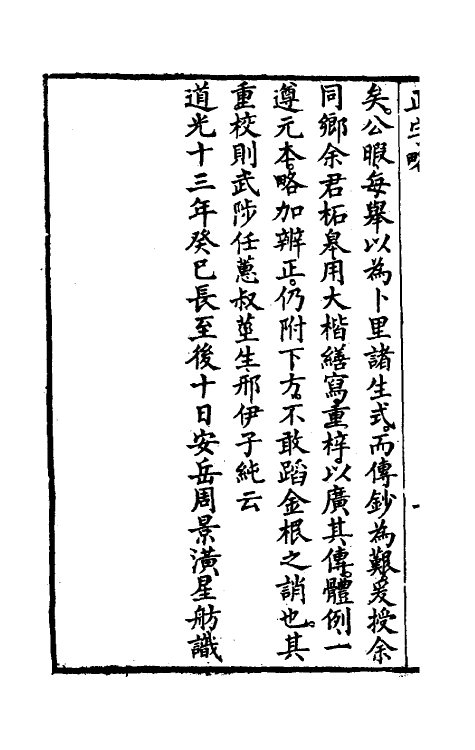 正字略
矣。公暇、每舉以為卜里諸生式。而傳鈔為艱。爰授余
同鄉余君柘皋、用大楷繕寫、重梓。以廣其傳。體例一
遵元本。略加辨正。仍附下方。不敢蹈金根之誚也。其
重校則武陟任蕙叔莖生、邢伊子純云
道光十三年癸巳長至後十日安岳周景潢星舫識